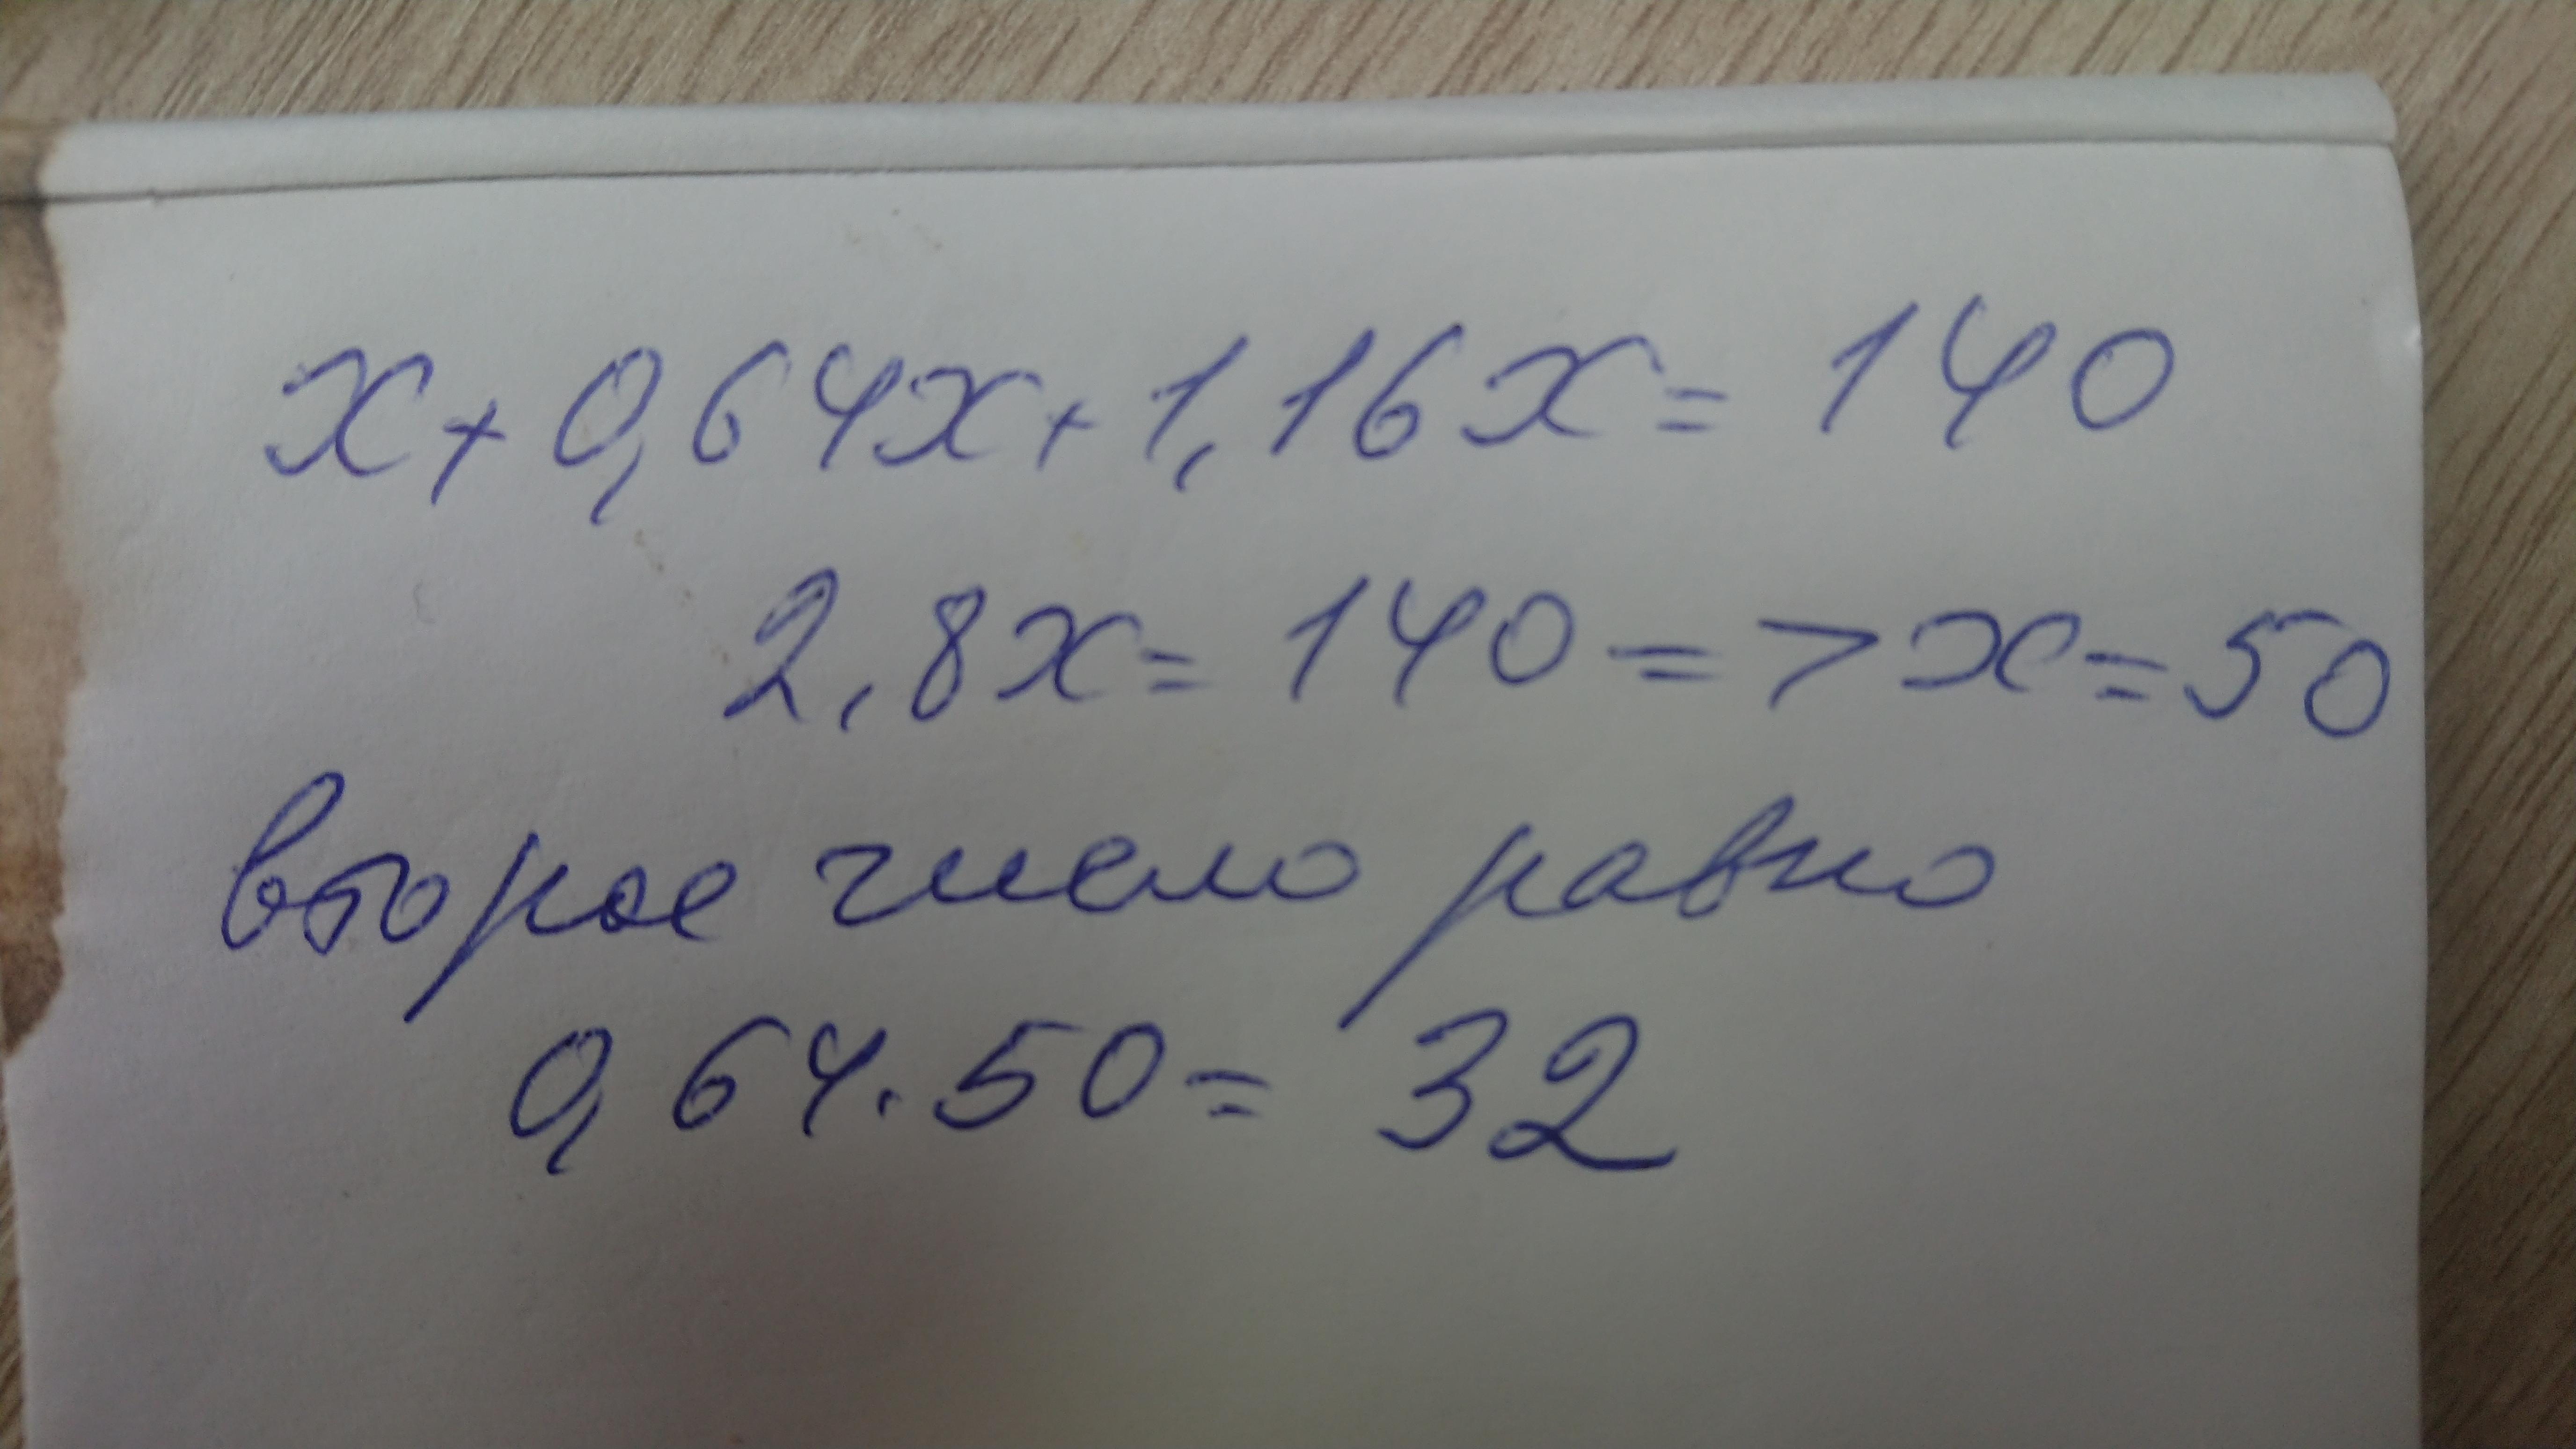 x + 0,64x + 1,16x = 140
2,8x = 140 => x = 50
второе число равно
0,64 · 50 = 32